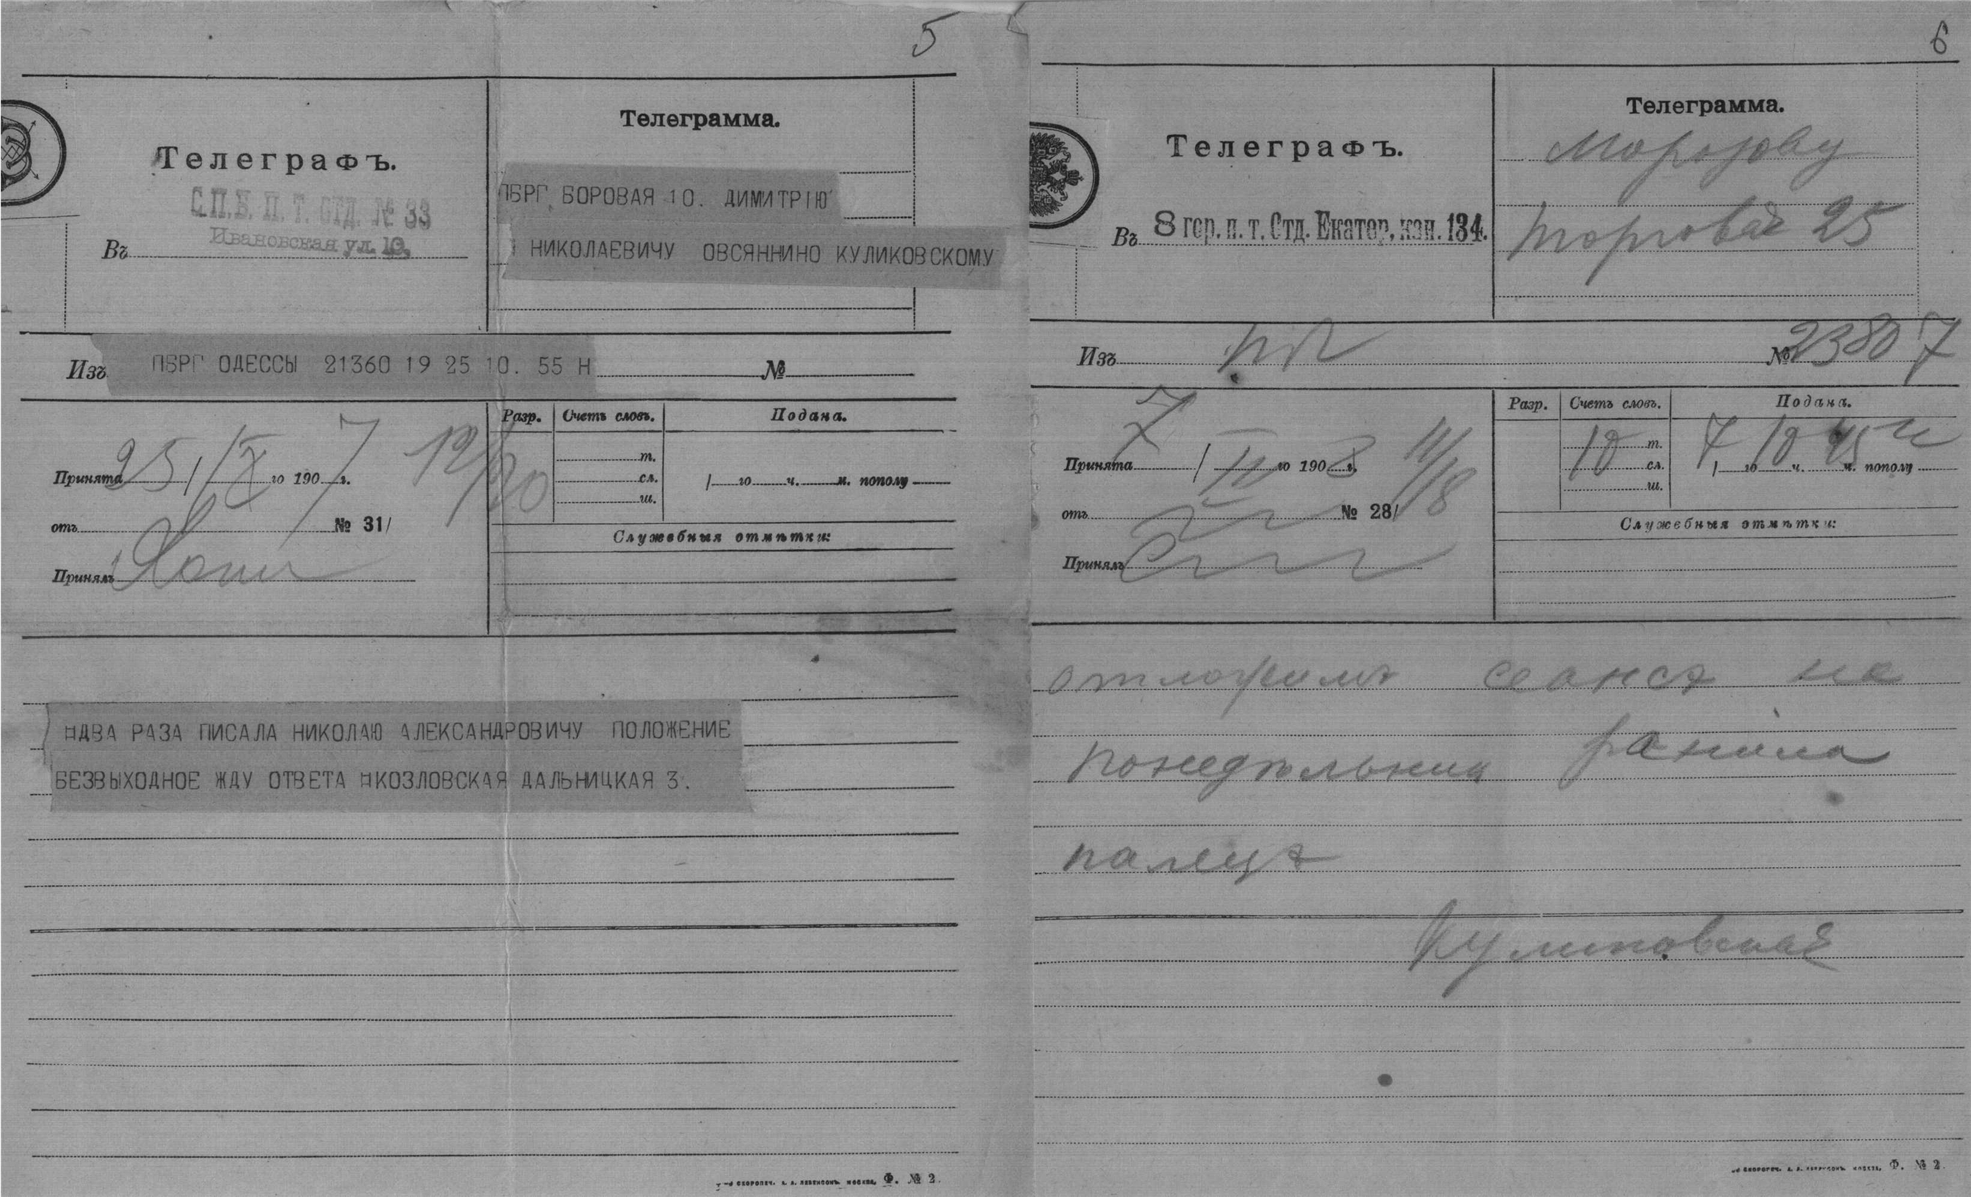 5
Телеграфъ.
С.П.Б. П. Т. ОТД. № 33
Ивановская ул. 10,
Въ
Телеграмма.
ПБРГ БОРОВАЯ 10. ДИМИТРІЮ
НИКОЛАЕВИЧУ ОВСЯННИНО КУЛИКОВСКОМУ
Изъ ПБРГ ОДЕССЫ 21360 19 25 10. 55 Н №
Принята 25 / IX го 1907 г. 12/20
отъ № 31/
Принялъ
Разр. Счетъ словъ. Подана.
т.
сл. / го ч. м. пополу
ш.
Служебныя отмѣтки:
¤ДВА РАЗА ПИСАЛА НИКОЛАЮ АЛЕКСАНДРОВИЧУ ПОЛОЖЕНИЕ
БЕЗВЫХОДНОЕ ЖДУ ОТВЕТА ¤КОЗЛОВСКАЯ ДАЛЬНИЦКАЯ 3.
Ф. № 2.
6
Телеграфъ.
Въ 8 гор. п. т. Отд. Екатор. кан. 134.
Телеграмма.
Морозову
торговая 25
Изъ пб № 23807
Принята 7 / II го 1908 г. 11/18
отъ № 28/
Принялъ
Разр. Счетъ словъ. Подана.
10 т.
сл. 7 / го 10 ч. 45 м. пополу
ш.
Служебныя отмѣтки:
отложимъ сеансъ на
понедѣльник ранила
палецъ
Куликовская
Ф. № 2.